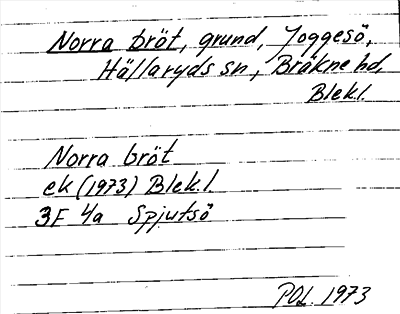 Norra bröt, grund, Joggesö,
Hällaryds sn, Bräkne hd,
Blek.l.
Norra bröt
ek (1973) Blek.l.
3F 4a Spjutsö
POL. 1973